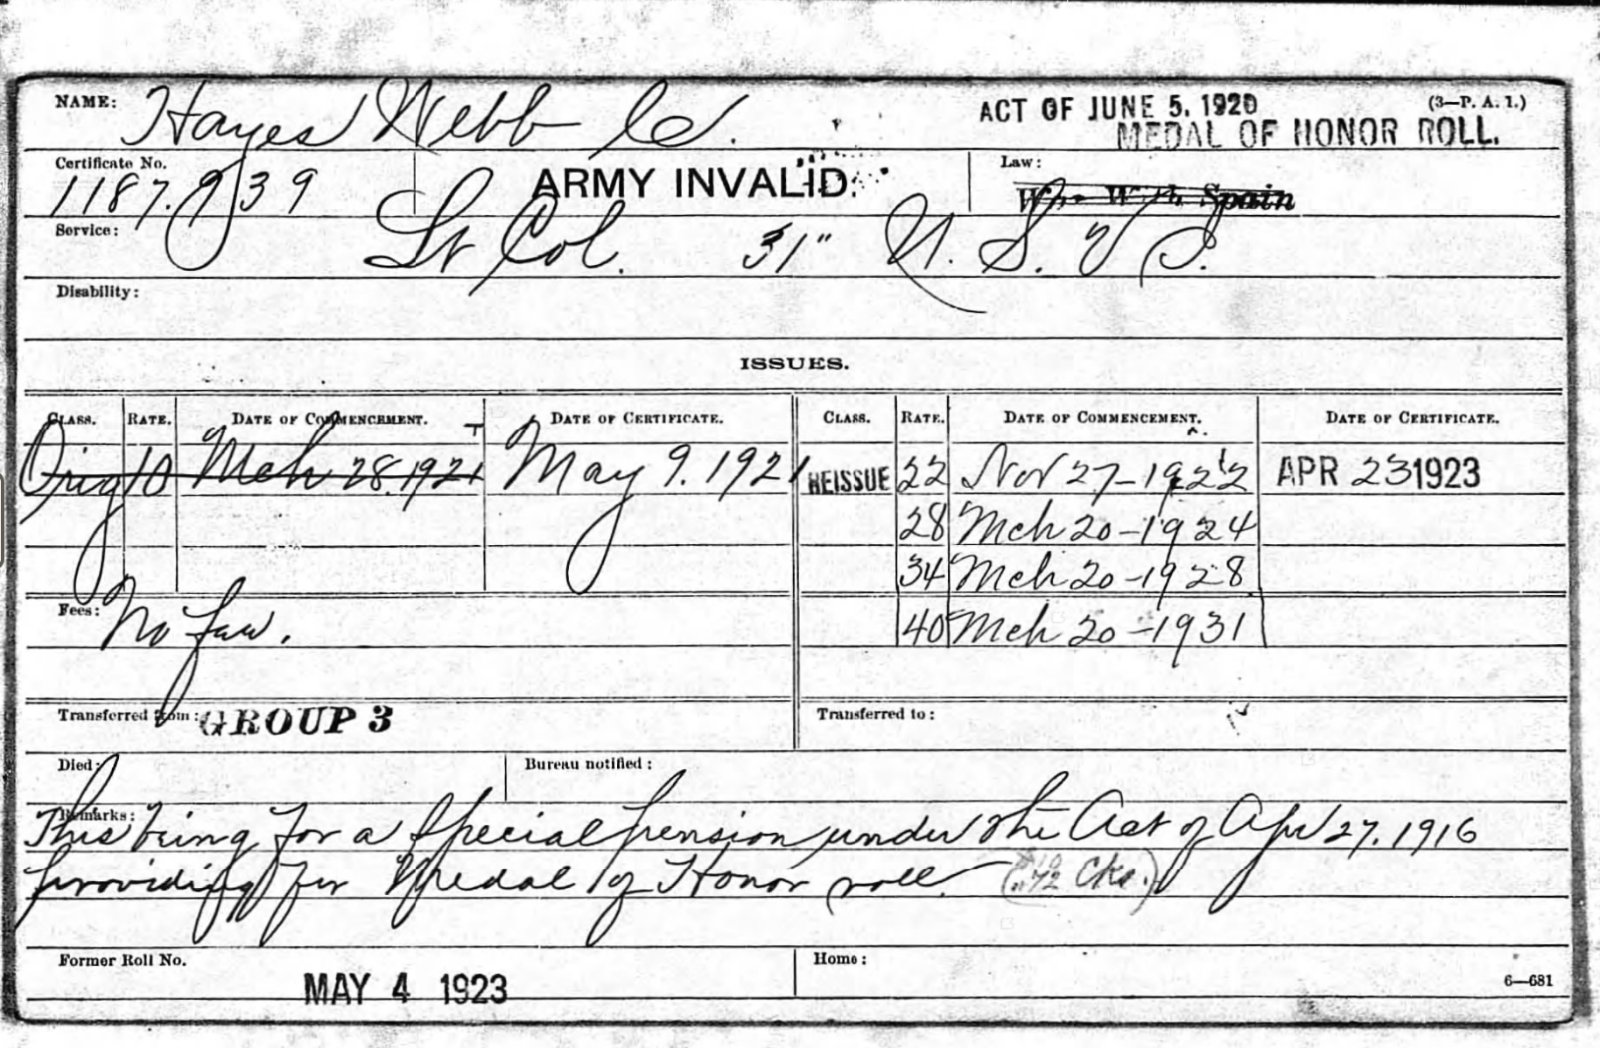 NAME: Hayes Webb C. ACT OF JUNE 5, 1920 (3—P. A. 1.)
MEDAL OF HONOR ROLL.
Certificate No. 1187.939 ARMY INVALID Law: War With Spain
Service: Lt Col. 31" U. S. V S.
Disability:
ISSUES.
CLASS. RATE. DATE OF COMMENCEMENT. DATE OF CERTIFICATE. CLASS. RATE. DATE OF COMMENCEMENT. DATE OF CERTIFICATE.
Orig 10 Mch 28.1921 May 9. 1921 REISSUE 22 Nov 27-1922 APR 23 1923
28 Mch 20-1924
34 Mch 20-1928
Fees: No fee. 40 Mch 20-1931
Transferred from: GROUP 3 Transferred to:
Died: Bureau notified:
Remarks:
This being for a Special pension under the Act of Apr 27. 1916
providing for Medal of Honor roll. Cks.)
Former Roll No. Home:
MAY 4 1923 6—681